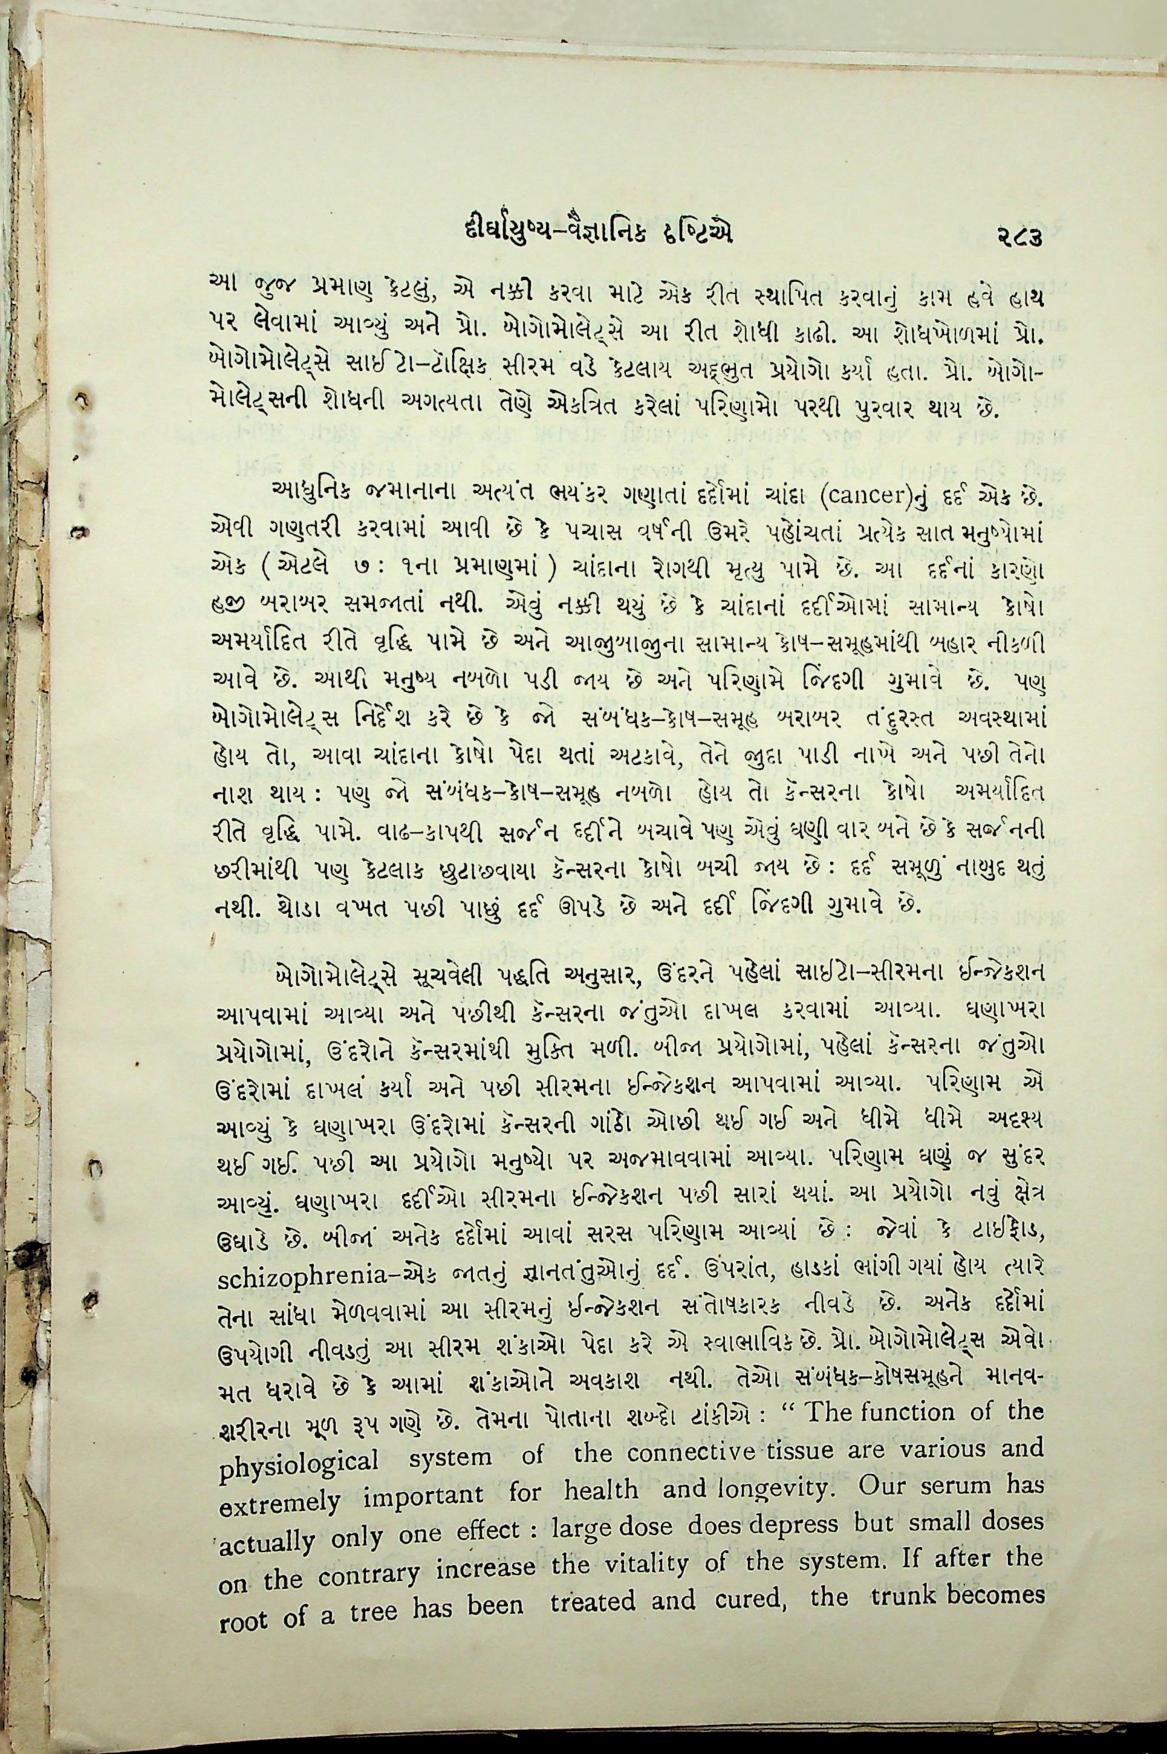 દીર્ઘાયુષ્ય–વૈજ્ઞાનિક દૃષ્ટિએ ૨૮૩
આ જુજ પ્રમાણ કેટલું, એ નક્કી કરવા માટે એક રીત સ્થાપિત કરવાનું કામ હવે હાથ
પર લેવામાં આવ્યું અને પ્રો. બોગોમોલેટ્સે આ રીત શોધી કાઢી. આ શોધખોળમાં પ્રો.
બોગોમોલેટ્સે સાઈટો–ટૉક્ષિક સીરમ વડે કેટલાય અદ્દભુત પ્રયોગો કર્યા હતા. પ્રો. બોગો-
મોલેટ્સની શોધની અગત્યતા તેણે એકત્રિત કરેલાં પરિણામો પરથી પુરવાર થાય છે.
આધુનિક જમાનાના અત્યંત ભયંકર ગણાતાં દર્દોમાં ચાંદા (cancer)નું દર્દ એક છે.
એવી ગણતરી કરવામાં આવી છે કે પચાસ વર્ષની ઉમરે પહોંચતાં પ્રત્યેક સાત મનુષ્યોમાં
એક ( એટલે ૭ : ૧ના પ્રમાણમાં ) ચાંદાના રોગથી મૃત્યુ પામે છે. આ દર્દનાં કારણો
હજી બરાબર સમજાતાં નથી. એવું નક્કી થયું છે કે ચાંદાનાં દર્દીઓમાં સામાન્ય કોષો
અમર્યાદિત રીતે વૃદ્ધિ પામે છે અને આજુબાજુના સામાન્ય કોષ–સમૂહમાંથી બહાર નીકળી
આવે છે. આથી મનુષ્ય નબળો પડી જાય છે અને પરિણામે જિંદગી ગુમાવે છે. પણ
બોગોમોલેટ્સ નિર્દેશ કરે છે કે જો સંબંધક–કોષ–સમૂહ બરાબર તંદુરસ્ત અવસ્થામાં
હોય તો, આવા ચાંદાના કોષો પેદા થતાં અટકાવે, તેને જુદા પાડી નાખે અને પછી તેનો
નાશ થાય : પણ જો સંબંધક–કોષ–સમૂહ નબળો હોય તો કૅન્સરના કોષો અમર્યાદિત
રીતે વૃદ્ધિ પામે. વાઢ–કાપથી સર્જન દર્દીને બચાવે પણ એવું ઘણી વાર બને છે કે સર્જનની
છરીમાંથી પણ કેટલાક છુટાછવાયા કૅન્સરના કોષો બચી જાય છે : દર્દ સમૂળું નાબુદ થતું
નથી. થોડા વખત પછી પાછું દર્દ ઊપડે છે અને દર્દી જિંદગી ગુમાવે છે.
બોગોમોલેટ્સે સૂચવેલી પદ્ધતિ અનુસાર, ઉંદરને પહેલાં સાઈટો–સીરમના ઈન્જેકશન
આપવામાં આવ્યા અને પછીથી કૅન્સરના જંતુઓ દાખલ કરવામાં આવ્યા. ઘણાખરા
પ્રયોગોમાં, ઉંદરોને કૅન્સરમાંથી મુક્તિ મળી. બીજા પ્રયોગોમાં, પહેલાં કૅન્સરના જંતુઓ
ઉંદરોમાં દાખલ કર્યા અને પછી સીરમના ઈન્જેકશન આપવામાં આવ્યા. પરિણામ એ
આવ્યું કે ઘણાખરા ઉંદરોમાં કૅન્સરની ગાંઠો ઓછી થઈ ગઈ અને ધીમે ધીમે અદૃશ્ય
થઈ ગઈ. પછી આ પ્રયોગો મનુષ્યો પર અજમાવવામાં આવ્યા. પરિણામ ઘણું જ સુંદર
આવ્યું. ઘણાખરા દર્દીઓ સીરમના ઈન્જેકશન પછી સારાં થયાં. આ પ્રયોગો નવું ક્ષેત્ર
ઉઘાડે છે. બીજાં અનેક દર્દોમાં આવાં સરસ પરિણામ આવ્યાં છે : જેવાં કે ટાઈફોડ,
schizophrenia–એક જાતનું જ્ઞાનતંતુઓનું દર્દ. ઉપરાંત, હાડકાં ભાંગી ગયાં હોય ત્યારે
તેના સાંધા મેળવવામાં આ સીરમનું ઈન્જેકશન સંતોષકારક નીવડે છે. અનેક દર્દોમાં
ઉપયોગી નીવડતું આ સીરમ શંકાઓ પેદા કરે એ સ્વાભાવિક છે. પ્રો. બોગોમોલેટ્સ એવો
મત ધરાવે છે કે આમાં શંકાઓને અવકાશ નથી. તેઓ સંબંધક–કોષસમૂહને માનવ-
શરીરના મૂળ રૂપ ગણે છે. તેમના પોતાના શબ્દો ટાંકીએ : “ The function of the
physiological system of the connective tissue are various and
extremely important for health and longevity. Our serum has
actually only one effect : large dose does depress but small doses
on the contrary increase the vitality of the system. If after the
root of a tree has been treated and cured, the trunk becomes